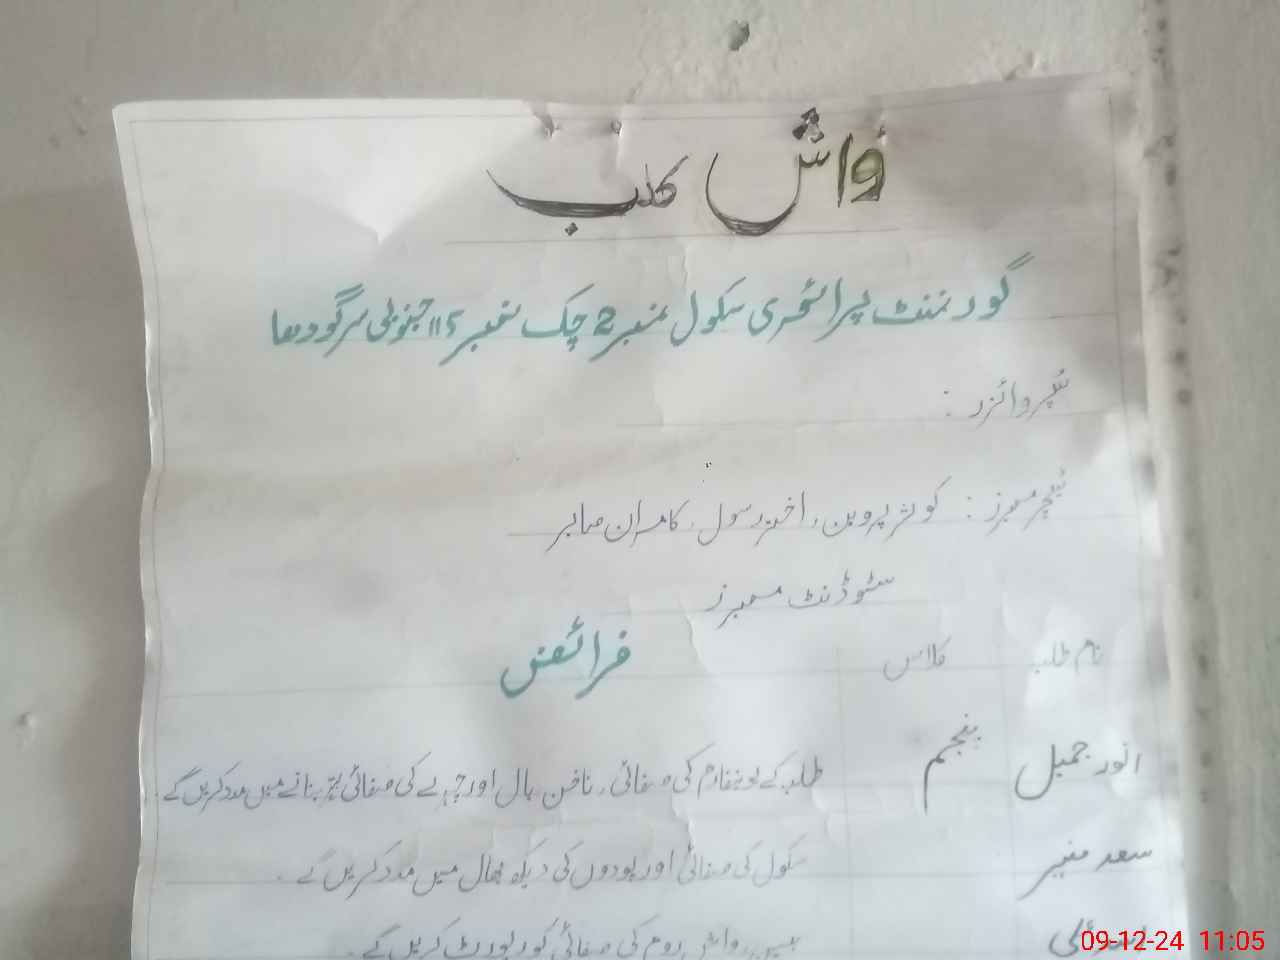 واش کلب
گورنمنٹ پرائمری سکول نمبر 2 چک نمبر 115 جنوبی سرگودھا
سپروائزر :
ٹیچر ممبرز : کوثر پروین، اختر رسول، کامران صابر
سٹوڈنٹ ممبرز
نام طلبہ کلاس فرائض
انور جمیل پنجم طلبہ کے یونیفارم کی صفائی، ناخن بال اور چہرے کی صفائی بہتر بنانے میں مدد کریں گے۔
سعد منیر سکول کی صفائی اور پودوں کی دیکھ بھال میں مدد کریں گے۔
واش روم کی صفائی کو رپورٹ کریں گے۔
09-12-24 11:05